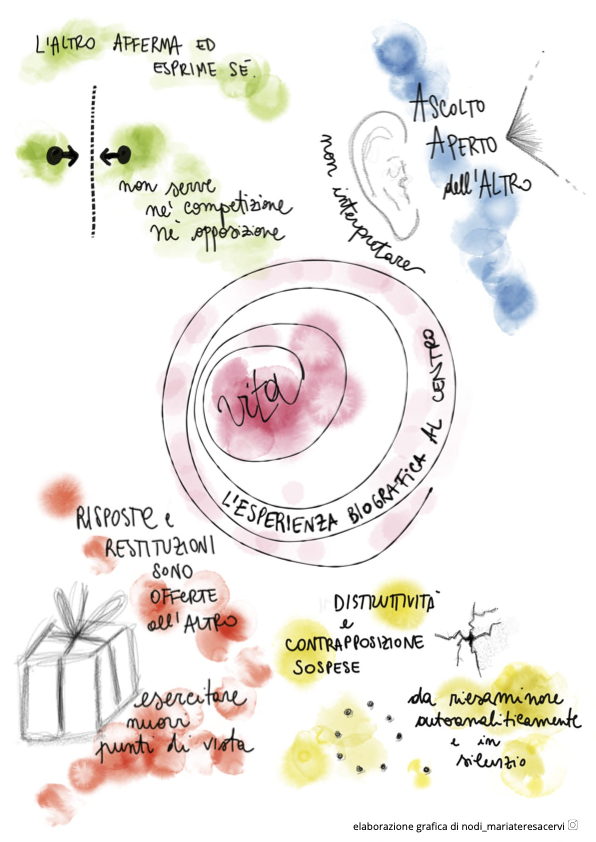 L'ALTRO AFFERMA ED
ESPRIME SÉ.
non serve
né competizione
né opposizione
ASCOLTO
APERTO
dell'ALTRO
non interpretare
vita
L'ESPERIENZA BIOGRAFICA AL CENTRO
RISPOSTE e
RESTITUZIONI
SONO
OFFERTE
all'ALTRO
esercitare
nuovi
punti di vista
DISTRUTTIVITÀ
e
CONTRAPPOSIZIONE
SOSPESE
da riesaminare
autoanaliticamente
e in
silenzio
elaborazione grafica di nodi_mariateresacervi